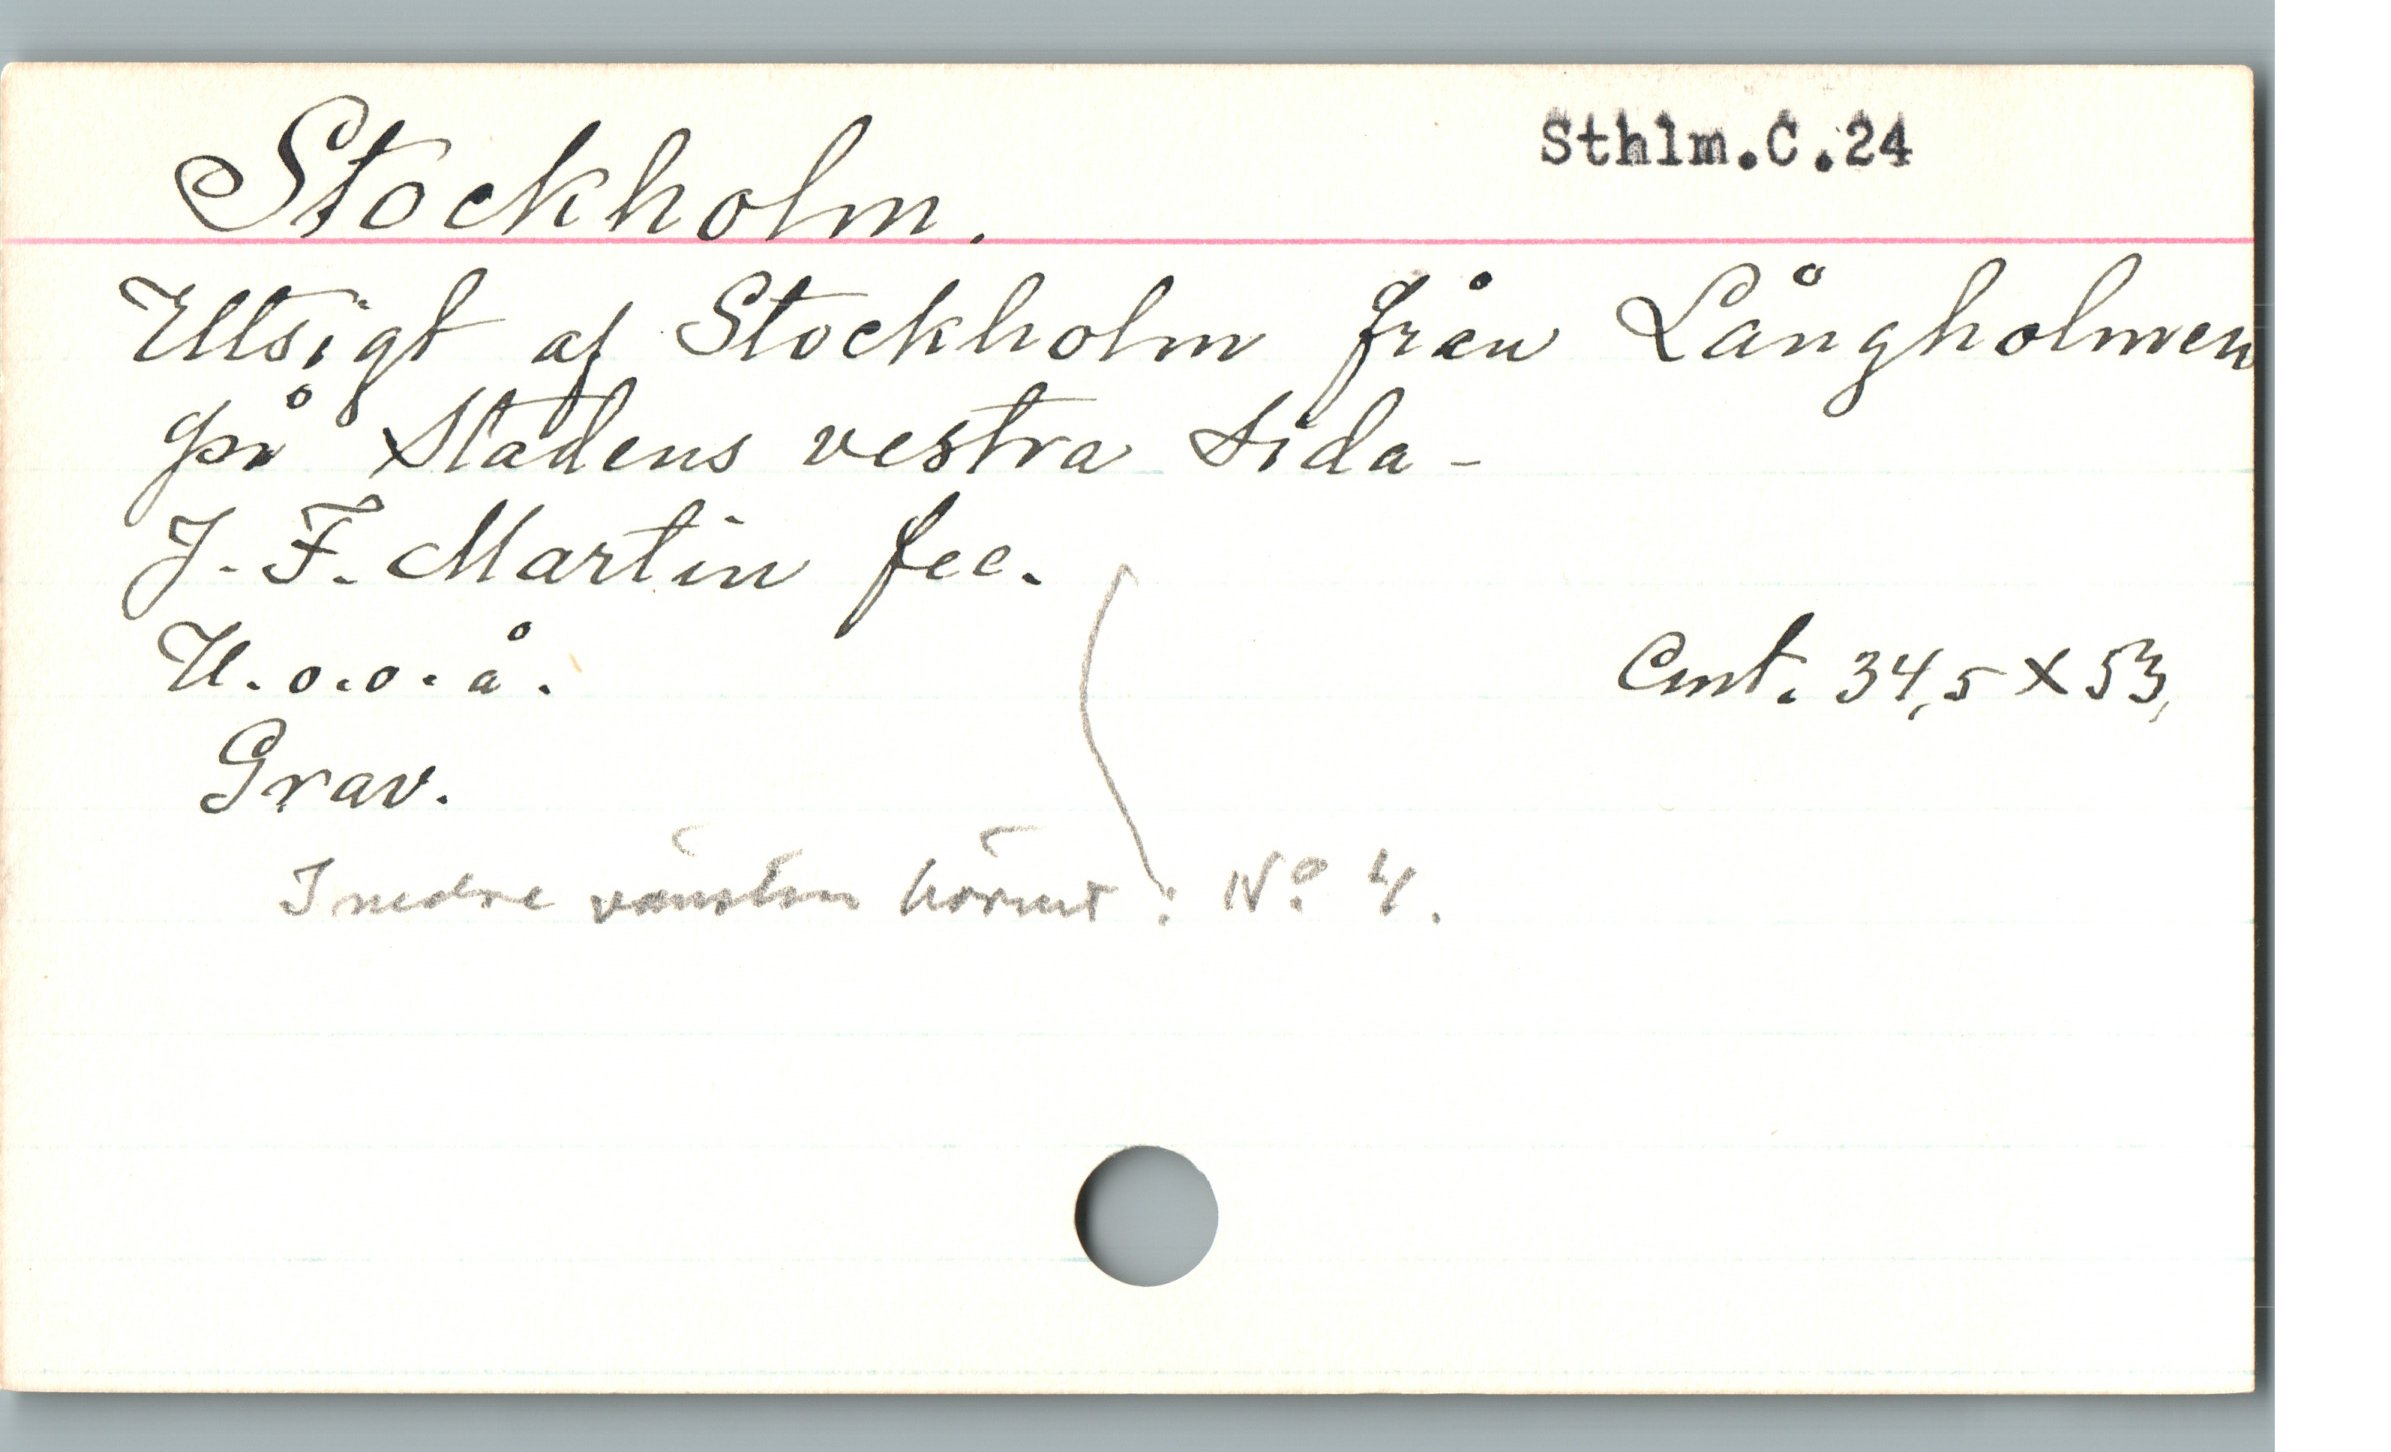 Sthlm.C.24
Stockholm.
Utsigt af Stockholm från Långholmen
på Stadens vestra Sida -
J. F. Martin fec.
U.o.o.å. Cmt. 34,5 X 53,
Grav.
I nedre vänstra hörnet : Nº 4.